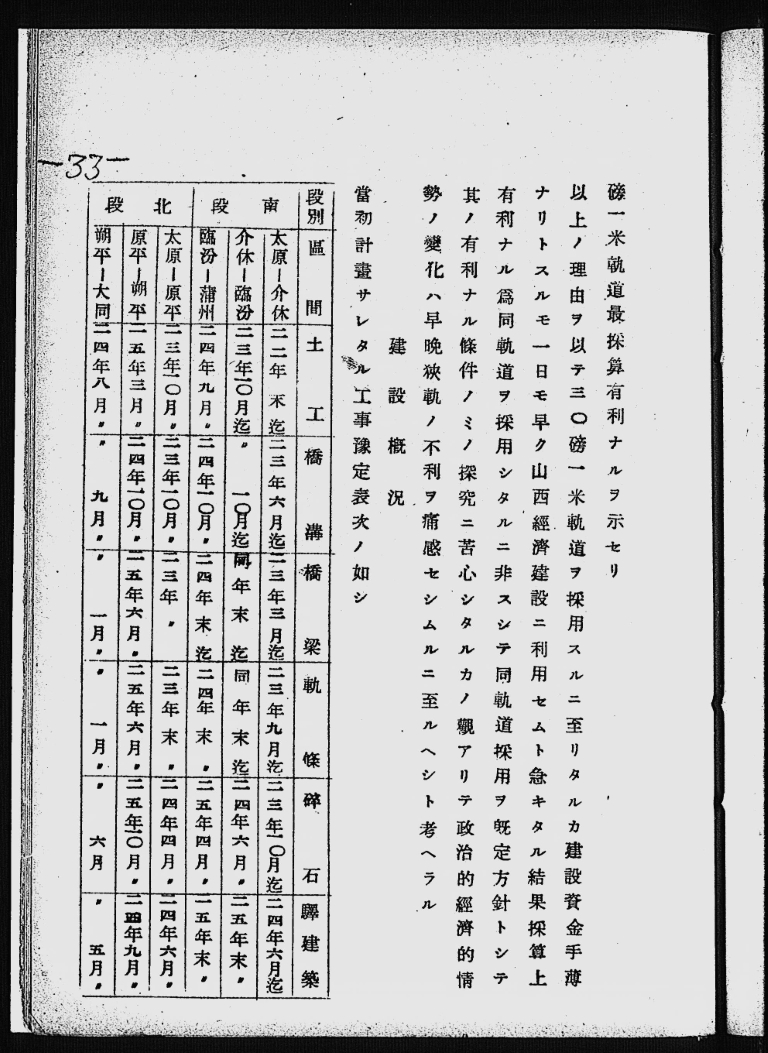 -33-
磅一米軌道最採算有利ナルヲ示セリ
以上ノ理由ヲ以テ三〇磅一米軌道ヲ採用スルニ至リタルカ建設資金手薄
ナリトスルモ一日モ早ク山西經濟建設ニ利用セムト急キタル結果採算上
有利ナル爲同軌道ヲ採用シタルニ非スシテ同軌道採用ヲ既定方針トシテ
其ノ有利ナル條件ノミノ探究ニ苦心シタルカノ觀アリテ政治的經濟的情
勢ノ變化ハ早晩狹軌ノ不利ヲ痛感セシムルニ至ルヘシト考ヘラル
建設概況
當初計畫サレタル工事豫定表次ノ如シ
段別 區間 土工 橋溝 橋梁 軌條 碎石 驛建築
南段 太原―介休 二二年末迄 二三年六月迄 二三年三月迄 二三年九月迄 二三年一〇月迄 二四年六月迄
介休―臨汾 二三年一〇月迄 〃一〇月迄 同年末迄 同年末迄 二四年六月〃 二五年末〃
臨汾―蒲州 二四年九月〃 二四年一〇月〃 二四年末迄 二四年末〃 二五年四月〃 二五年末〃
北段 太原―原平 二三年一〇月〃 二三年一〇月〃 二三年〃 二三年末〃 二四年四月〃 二四年六月〃
原平―朔平 二五年三月〃 二四年一〇月〃 二五年六月〃 二五年六月〃 二五年一〇月〃 二四年九月〃
朔平―大同 二四年八月〃 〃九月〃 〃一月〃 〃一月〃 〃六月 〃五月〃